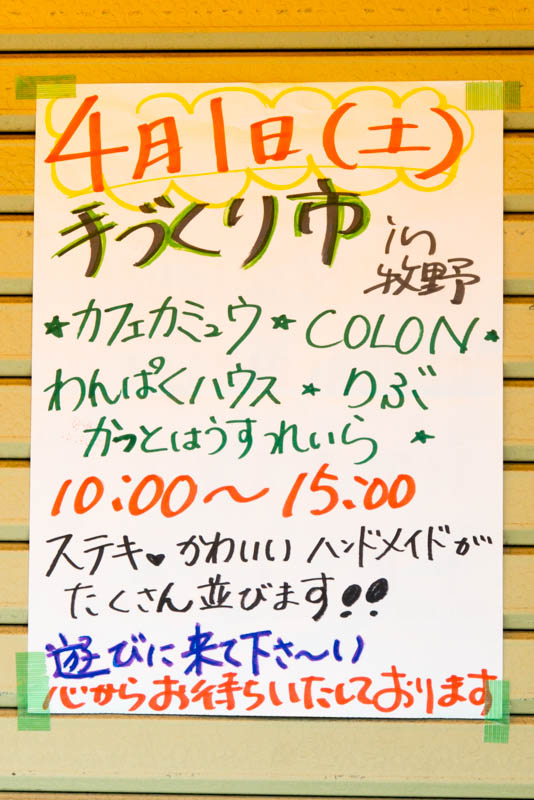 4月1日(土)
手づくり市 in
牧野
★カフェカミュウ★COLON★
わんぱくハウス★りぶ
かっとはうすれいら ★
10:00〜15:00
ステキ♥かわいいハンドメイドが
たくさん並びます!!
遊びに来て下さ〜い
心からお待ちいたしております